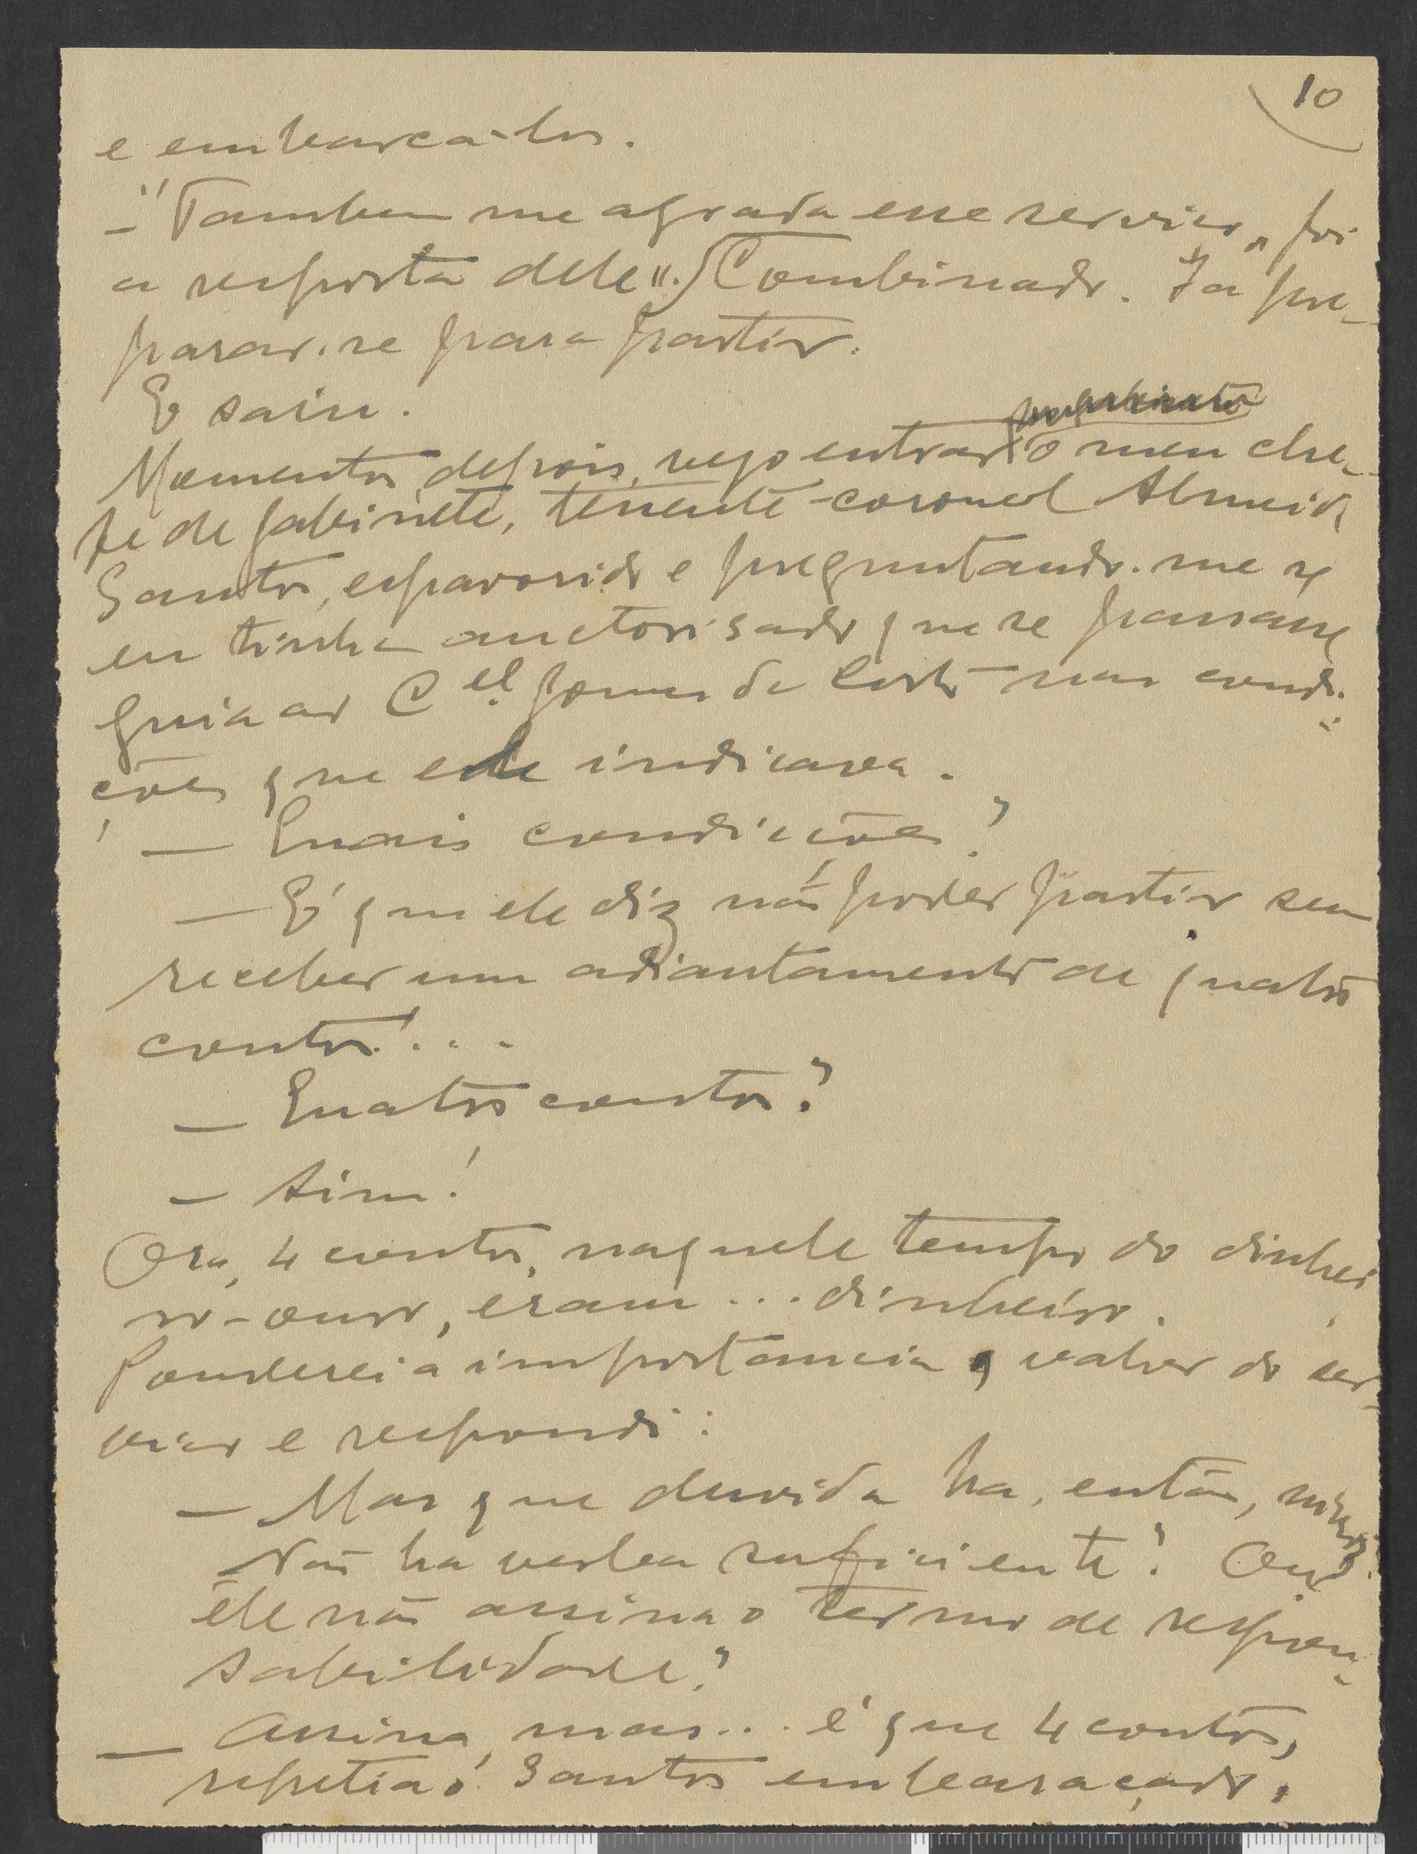 10
e embarca-los.
— "Tambem me agrada esse serviço", foi
a resposta dele. "Combinado. Ia pre-
parar-se para partir.
E saiu.
Momentos depois, vejo entrar o meu che-
fe de gabinete, tenente-coronel Almeida
Santos, espavorido e preguntando-me se
eu tinha auctorisado que se passasse
guia ao C.el Gomes da Costa nas condi-
ções que ele indicava.
— Quais condições?
— É que ele diz não poder partir sem
receber um adiantamento de quatro
contos!...
— Quatro contos?
— Sim!
Ora, 4 contos, naquele tempo do dinhei
ro-ouro, eram... dinheiro.
Ponderei a importancia e valor do ser-
viço e respondi:
— Mas que duvida ha, então,
Não ha verba suficiente? Ou
êle não assina o termo de respon-
sabilidade?
— Assina, mas... é que 4 contos,
repetia o Santos embaraçado.